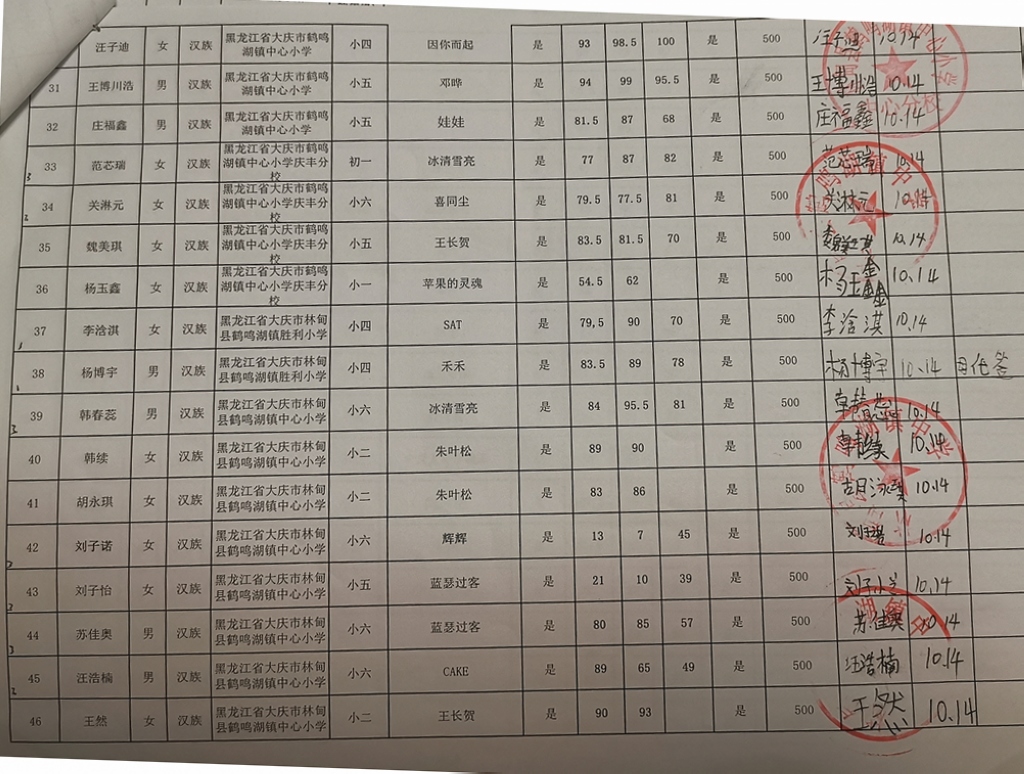 汪子迪 女 汉族 黑龙江省大庆市鹤鸣湖镇中心小学 小四 因你而起 是 93 98.5 100 是 500 汪子迪 10.14
31 王博川浩 男 汉族 黑龙江省大庆市鹤鸣湖镇中心小学 小五 邓晔 是 94 99 95.5 是 500 王博川浩 10.14
32 庄福鑫 男 汉族 黑龙江省大庆市鹤鸣湖镇中心小学 小五 娃娃 是 81.5 87 68 是 500 庄福鑫 10.14
33 范芯瑞 女 汉族 黑龙江省大庆市鹤鸣湖镇中心小学庆丰分校 初一 冰清雪亮 是 77 87 82 是 500 范芯瑞 10.14
34 关淋元 女 汉族 黑龙江省大庆市鹤鸣湖镇中心小学庆丰分校 小六 喜同尘 是 79.5 77.5 81 是 500 关淋元 10.14
35 魏美琪 女 汉族 黑龙江省大庆市鹤鸣湖镇中心小学庆丰分校 小五 王长贺 是 83.5 81.5 70 是 500 10.14
36 杨玉鑫 女 汉族 黑龙江省大庆市鹤鸣湖镇中心小学庆丰分校 小一 苹果的灵魂 是 54.5 62 是 500 杨玉鑫 10.14
37 李浛淇 女 汉族 黑龙江省大庆市林甸县鹤鸣湖镇胜利小学 小四 SAT 是 79,5 90 70 是 500 李浛淇 10.14
38 杨博宇 男 汉族 黑龙江省大庆市林甸县鹤鸣湖镇胜利小学 小四 禾禾 是 83.5 89 78 是 500 杨博宇 10.14
39 韩春蕊 男 汉族 黑龙江省大庆市林甸县鹤鸣湖镇中心小学 小六 冰清雪亮 是 84 95.5 81 是 500 10.14
40 韩续 女 汉族 黑龙江省大庆市林甸县鹤鸣湖镇中心小学 小二 朱叶松 是 89 90 是 500 10.14
41 胡永琪 女 汉族 黑龙江省大庆市林甸县鹤鸣湖镇中心小学 小二 朱叶松 是 83 86 是 500 10.14
42 刘子诺 女 汉族 黑龙江省大庆市林甸县鹤鸣湖镇中心小学 小六 辉辉 是 13 7 45 是 500 10.14
43 刘子怡 女 汉族 黑龙江省大庆市林甸县鹤鸣湖镇中心小学 小五 蓝瑟过客 是 21 10 39 是 500 10.14
44 苏佳奥 男 汉族 黑龙江省大庆市林甸县鹤鸣湖镇中心小学 小六 蓝瑟过客 是 80 85 57 是 500 苏佳奥 10.14
45 汪浩楠 男 汉族 黑龙江省大庆市林甸县鹤鸣湖镇中心小学 小六 CAKE 是 89 65 49 是 500 汪浩楠 10.14
46 王然 女 汉族 黑龙江省大庆市林甸县鹤鸣湖镇中心小学 小二 王长贺 是 90 93 是 500 王然 10.14